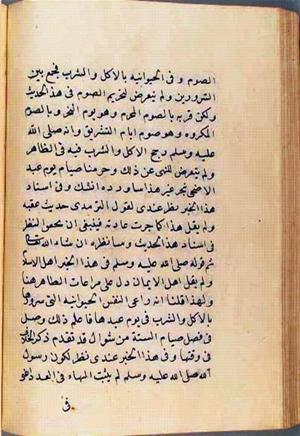 الصوم وفى الحيوانيه بالاكل والشرب فجمع بين
السرورين ولم يتعرض لتحريم الصوم فى هذا الحديث
ولكن قرنه بالصوم المحرم وهو يوم النحر وبالصوم
المكروه وهو صوم ايام التشريق وانه صلى الله
عليه وسلم رجح الاكل والشرب فيه فى الظاهر
ولم يتعرض للنهى عن ذلك وحرمنا صيام يوم عيد
الاضحى بخبر غير هذا ساورده ان شا وفى اسناد
هذا الخبر نظر عندى لقول الترمذى حديث عقبه
ولم يقل هذا كما جرت عادته فينبغى ان يحقق النظر
فى اسناد هذا الحديث وسانظره ان شاء الله تعالى
ثم قوله صلى الله عليه وسلم فى هذا الخبر اهل الاسلام
ولم يقل اهل الايمان دل على مراعات الظاهر هنا
ولهذا قلنا انه راعى النفس الحيوانيه التى سرورها
بالاكل والشرب فى يوم عيدها فاعلم ذلك وصل
فى فصل صيام الستة من شوال قد تقدم ذكر الخبر
فى وقتها وفى هذا الخبر عندى نظر لكون رسول
الله صلى الله عليه وسلم لم يثبت الهاء فى العدد اعنى
فى